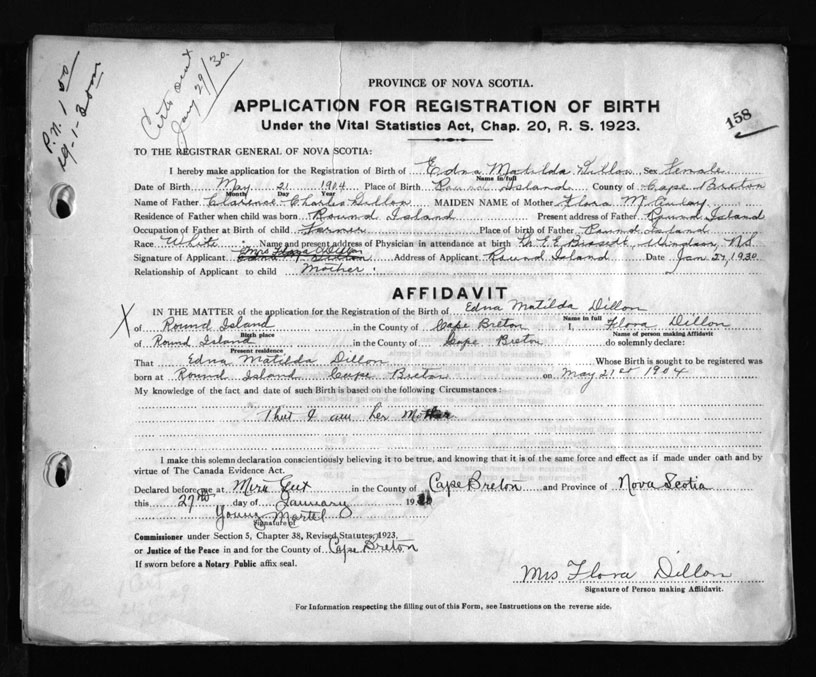 P.N. 1 50
Certs sent
Jany 29/30.
158
PROVINCE OF NOVA SCOTIA.
APPLICATION FOR REGISTRATION OF BIRTH
Under the Vital Statistics Act, Chap. 20, R. S. 1923.
TO THE REGISTRAR GENERAL OF NOVA SCOTIA:
I hereby make application for the Registration of Birth of Edna Matilda Dillon Sex Female
Name in full
Date of Birth May 21 1904 Place of Birth Round Island County of Cape Breton
Month Day Year
Name of Father Clarence Charles Dillon MAIDEN NAME of Mother Flora McAulay
Residence of Father when child was born Round Island Present address of Father Round Island
Occupation of Father at Birth of child Farmer Place of birth of Father Round Island
Race White Name and present address of Physician in attendance at birth Windsor, N.S.
Mrs Flora Dillon
Signature of Applicant Address of Applicant Round Island Date Jan 27, 1930
Relationship of Applicant to child Mother
AFFIDAVIT
IN THE MATTER of the application for the Registration of the Birth of Edna Matilda Dillon
Name in full
X of Round Island in the County of Cape Breton I, Flora Dillon
Birth place Name of person making Affidavit
of Round Island in the County of Cape Breton do solemnly declare:
Present residence
That Edna Matilda Dillon Whose Birth is sought to be registered was
born at Round Island Cape Breton on May 21st 1904
My knowledge of the fact and date of such Birth is based on the following Circumstances:
That I am her Mother
I make this solemn declaration conscientiously believing it to be true, and knowing that it is of the same force and effect as if made under oath and by
virtue of The Canada Evidence Act.
Declared before me at Mira Gut in the County of Cape Breton and Province of Nova Scotia
this 27th day of January 19
Young Martel
Signature of
Commissioner under Section 5, Chapter 38, Revised Statutes, 1923,
or Justice of the Peace in and for the County of Cape Breton
If sworn before a Notary Public affix seal.
Mrs Flora Dillon
Signature of Person making Affidavit.
For Information respecting the filling out of this Form, see Instructions on the reverse side.